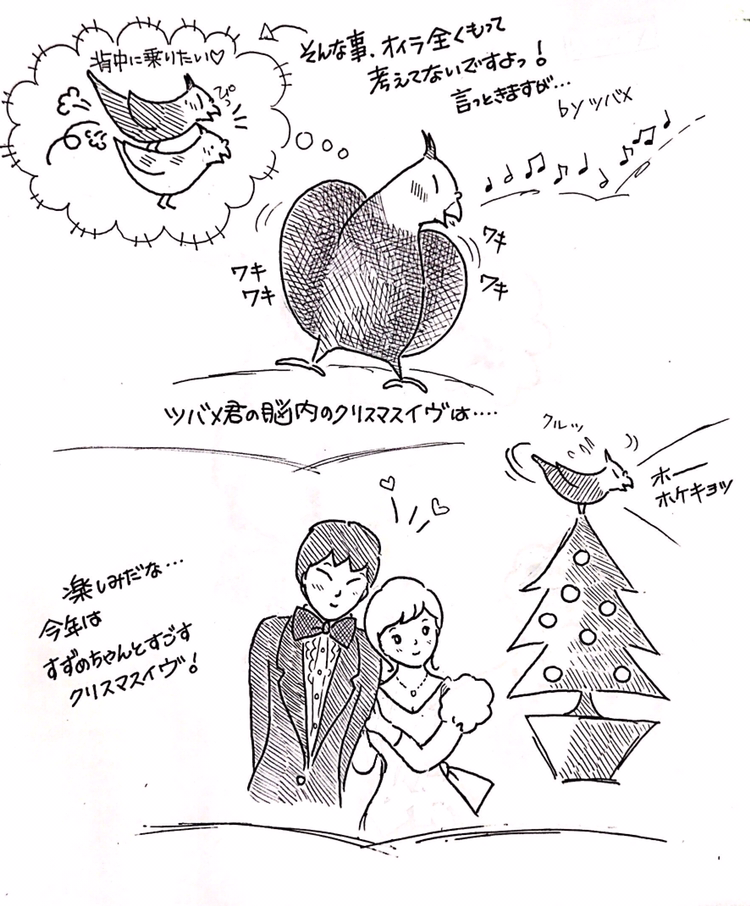 背中に乗りたい♡
ぴっ
そんな事、オイラ全くもって
考えてないですよっ！
言っときますが…
byツバメ
ワキ
ワキ
ワキ
ワキ
ツバメ君の脳内のクリスマスイヴは‥‥
クルッ
ホー
ホケキョッ
楽しみだな…
今年は
すずめちゃんとすごす
クリスマスイヴ！